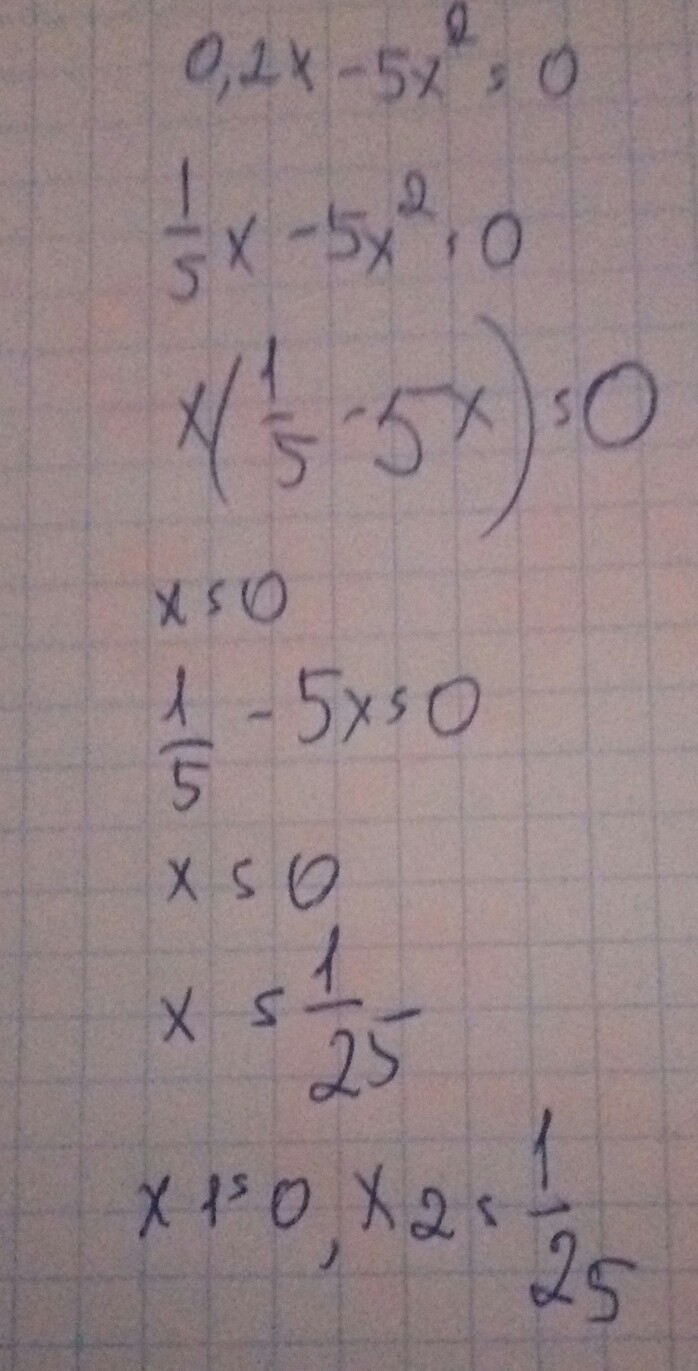 0,2x - 5x² = 0
1/5 x - 5x² = 0
x(1/5 - 5x) = 0
x = 0
1/5 - 5x = 0
x = 0
x = 1/25
x1 = 0, x2 = 1/25